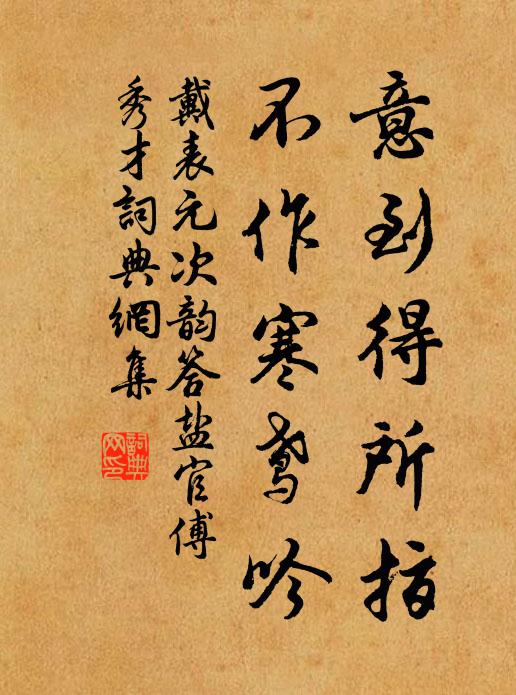 意到得所指
不作寒鸢吟
戴表元次韵答盐官傅
秀才詞典網集
詞典
网印